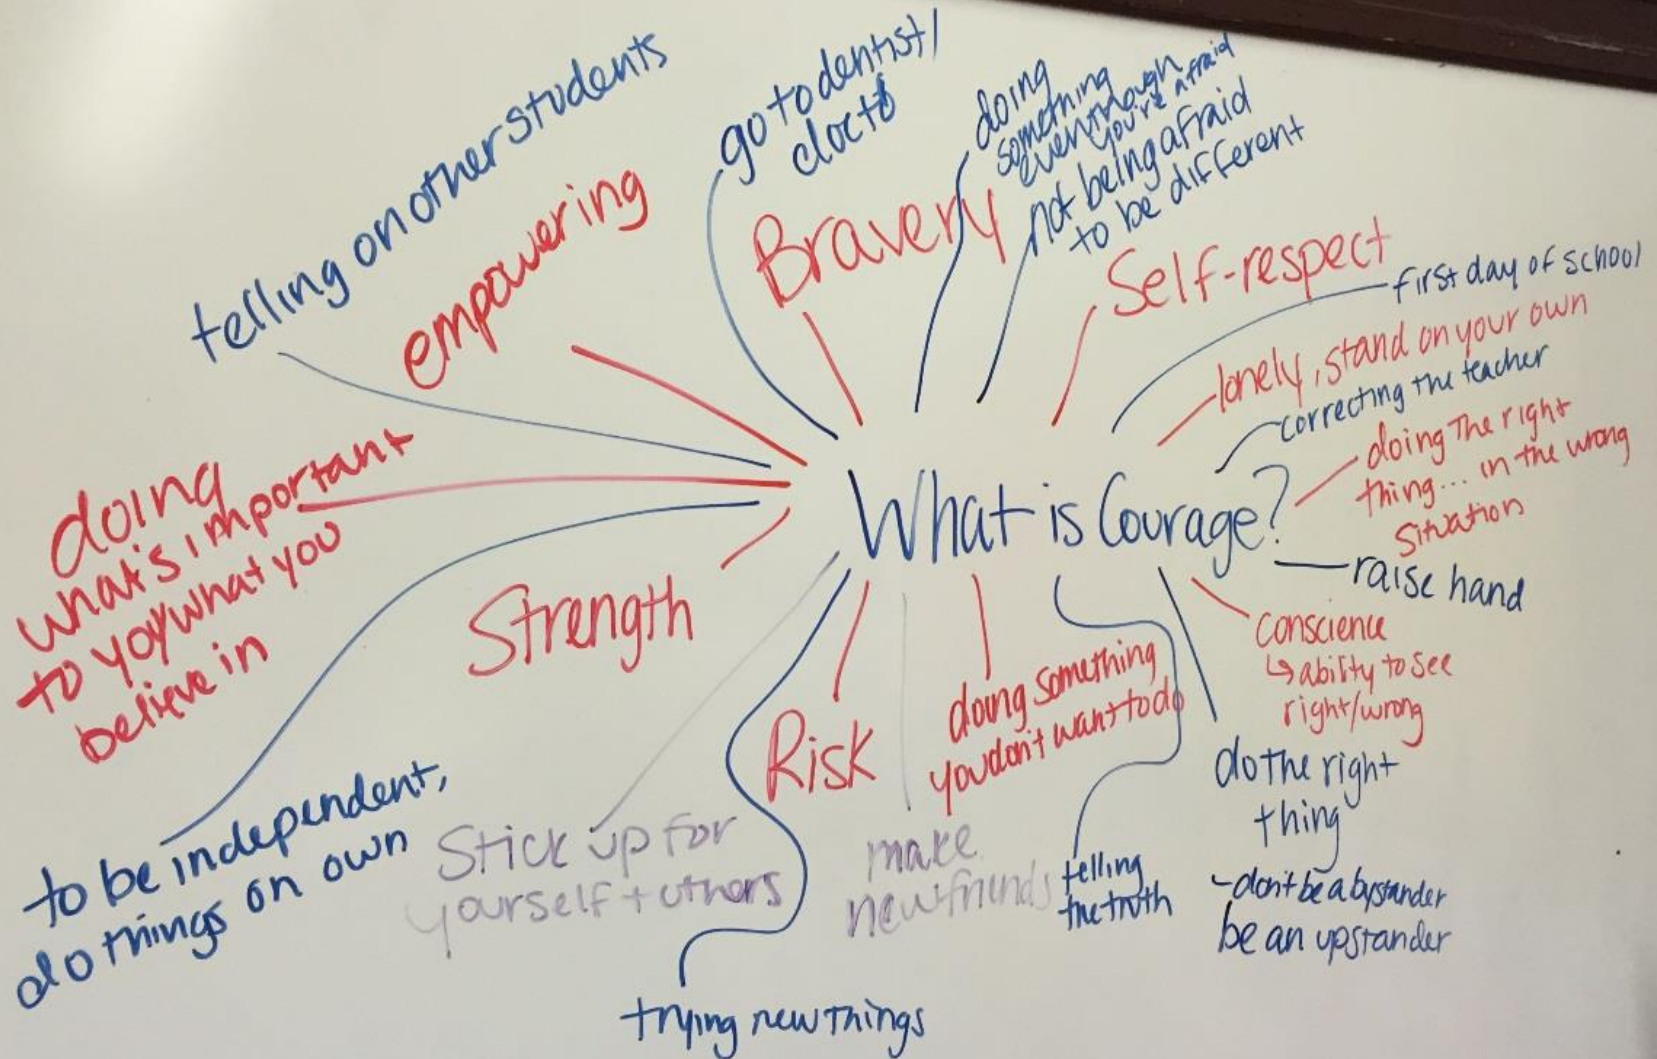 What is Courage?
telling on other students
empowering
go to dentist/
docto
Bravery
doing
something
even though
you're afraid
not being afraid
to be different
Self-respect
first day of school
lonely, stand on your own
correcting the teacher
doing the right
thing... in the wrong
situation
raise hand
conscience
↳ ability to see
right/wrong
do the right
thing
- don't be a bystander
be an upstander
telling
the truth
doing something
you don't want to do
make
new friends
Risk
trying new things
Stick up for
yourself + others
Strength
to be independent,
do things on own
doing
what's important
to you/what you
believe in